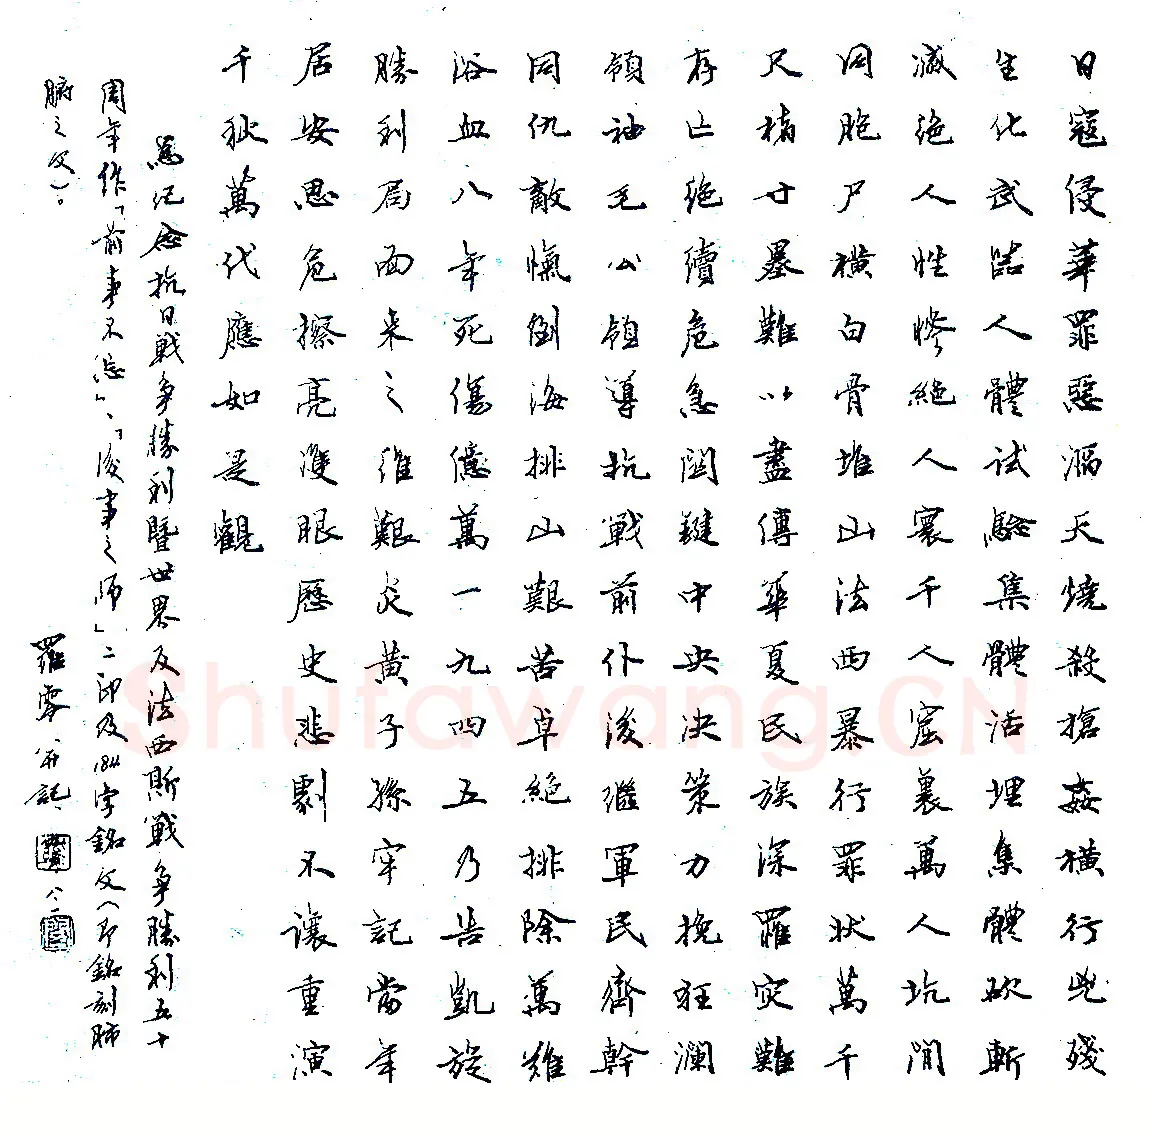 日寇侵華罪惡滔天燒殺搶姦橫行兇殘
生化武器人體試驗集體活埋集體砍斬
滅絕人性慘絕人寰千人窟裏萬人坑間
同胞尸橫白骨堆山法西暴行罪狀萬千
尺楮寸墨難以盡傳華夏民族深罹災難
存亡絕續危急関鍵中央決策力挽狂瀾
領袖毛公領導抗戰前仆後繼軍民齊幹
同仇敵愾倒海排山艱苦卓絕排除萬難
浴血八年死傷億萬一九四五乃告凱旋
勝利局面来之維艱炎黃子孫牢記當年
居安思危擦亮雙眼歷史悲劇不讓重演
千秋萬代應如是觀
為紀念抗日戰爭勝利暨世界反法西斯戰爭勝利五十
周年作「前事不忘」、「後事之師」二印及184字銘文（即銘刻肺
腑之文）。
羅 并記
Shufawang.CN